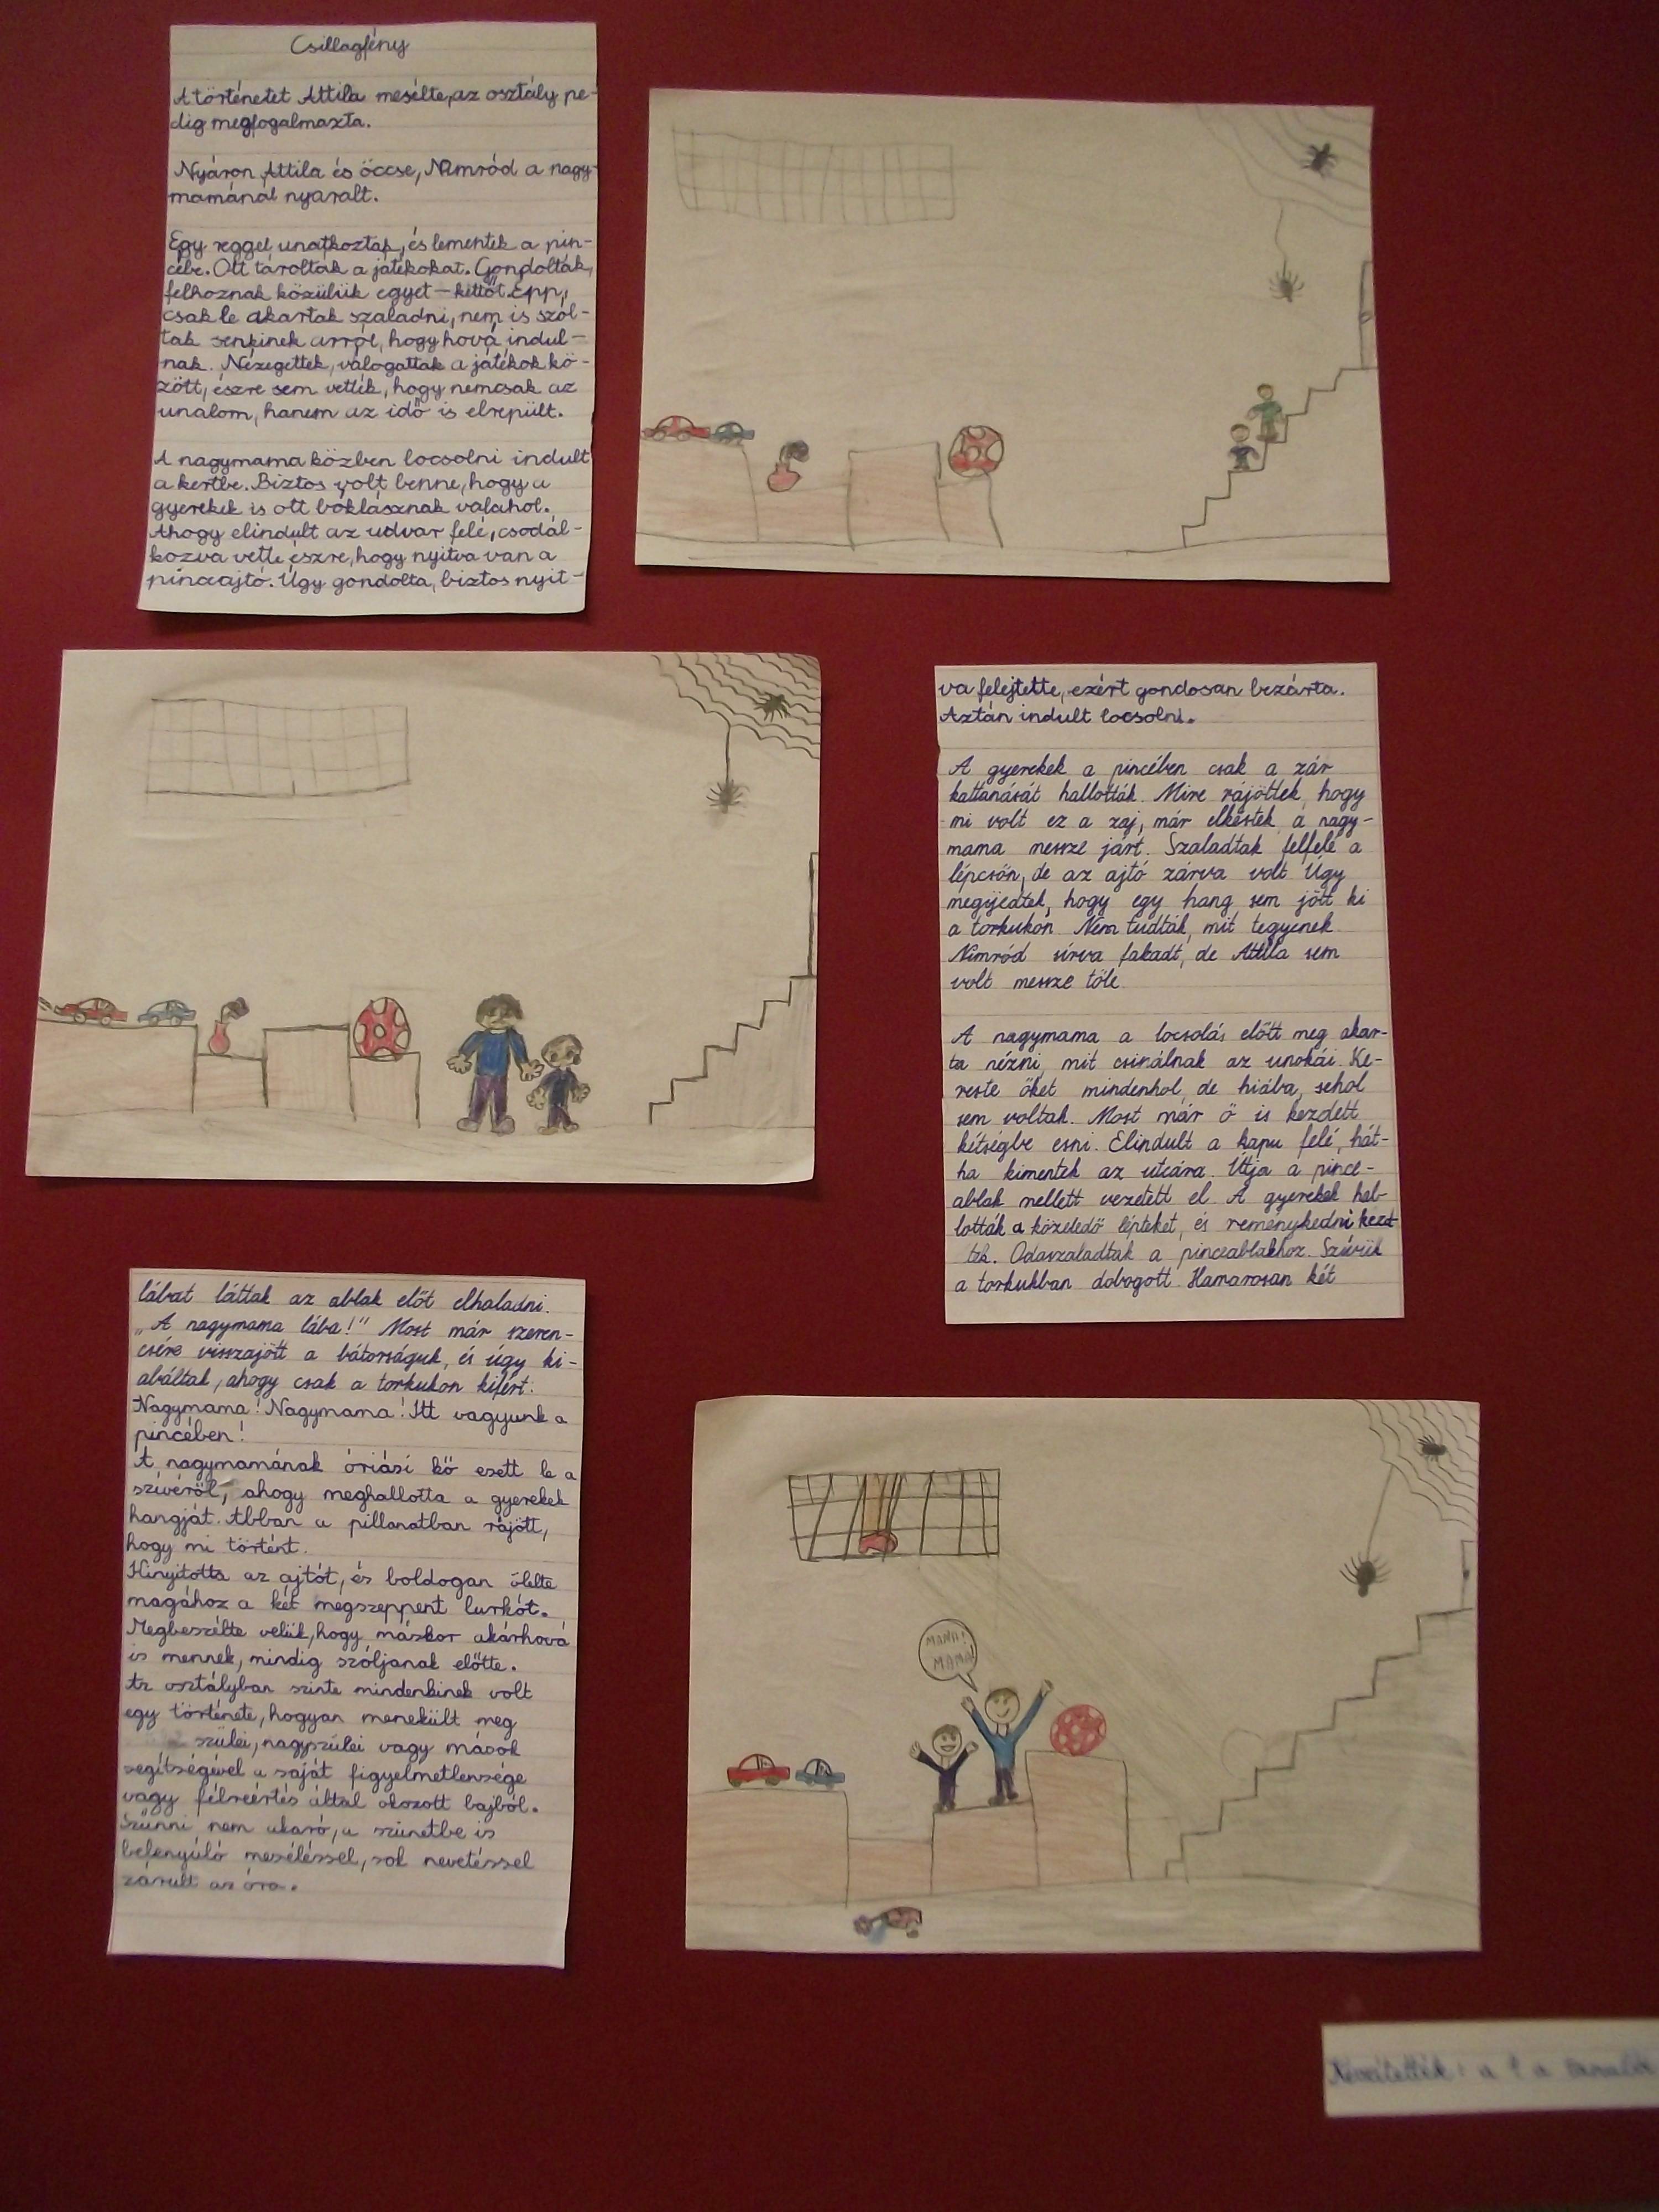 Csillagfény
A történetet Attila mesélte, az osztály pe-
dig megfogalmazta.
Nyáron Attila és öccse, Nimród a nagy-
mamánál nyaralt.
Egy reggel unatkoztak, és lementek a pin-
cébe. Ott tárolták a játékokat. Gondolták,
felhoznak közülük egyet-kettőt. Épp,
csak le akartak szaladni, nem is szól-
tak senkinek arról, hogy hová indul-
nak. Nézegettek, válogattak a játékok kö-
zött, észre sem vették, hogy nemcsak az
unalom, hanem az idő is elrepült.
A nagymama közben locsolni indult
a kertbe. Biztos volt benne, hogy a
gyerekek is ott bóklásznak valahol.
Ahogy elindult az udvar felé, csodál-
kozva vette észre, hogy nyitva van a
pinceajtó. Úgy gondolta, biztos nyit-
va felejtette, ezért gondosan bezárta.
Aztán indult locsolni.
A gyerekek a pincében csak a zár
kattanását hallották. Mire rájöttek, hogy
mi volt ez a zaj, már elkéstek, a nagy-
mama messze járt. Szaladtak felfelé a
lépcsőn, de az ajtó zárva volt. Úgy
megijedtek, hogy egy hang sem jött ki
a torkukon. Nem tudták, mit tegyenek.
Nimród sírva fakadt, de Attila sem
volt messze tőle.
A nagymama a locsolás előtt meg akar-
ta nézni, mit csinálnak az unokái. Ke-
reste őket mindenhol, de hiába, sehol
sem voltak. Most már ő is kezdett
kétségbe esni. Elindult a kapu felé, hát-
ha kimentek az utcára. Útja a pince-
ablak mellett vezetett el. A gyerekek hal-
lották a közeledő lépteket, és reménykedni kezd-
tek. Odaszaladtak a pinceablakhoz. Szívük
a torkukban dobogott. Hamarosan két
lábat láttak az ablak előt elhaladni.
„A nagymama lába!" Most már szeren-
csére visszajött a bátorságuk, és úgy ki-
abáltak, ahogy csak a torkukon kifért:
Nagymama! Nagymama! Itt vagyunk a
pincében!
A nagymamának óriási kő esett le a
szívéről, ahogy meghallotta a gyerekek
hangját. Abban a pillanatban rájött,
hogy mi történt.
Kinyitotta az ajtót, és boldogan ölelte
magához a két megszeppent lurkót.
Megbeszélte velük, hogy máskor akárhová
is mennek, mindig szóljanak előtte.
Az osztályban szinte mindenkinek volt
egy története, hogyan menekült meg
szülei, nagyszülei vagy mások
segítségével a saját figyelmetlensége
vagy félreértés által okozott bajból.
Szűnni nem akaró, a szünetbe is
belenyúló meséléssel, sok nevetéssel
zárult az óra.
MAMA!
MAMA!
Készítették: a